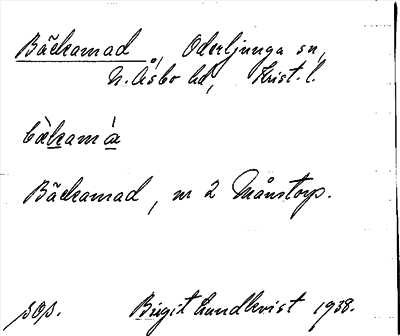 Bäckamad, Oderljunga sn,
N. Åsbo hd, Krist. l.
bàkamá
Bäckamad, nr 2 Månstorp.
sos. Birgit Lundkvist 1938.